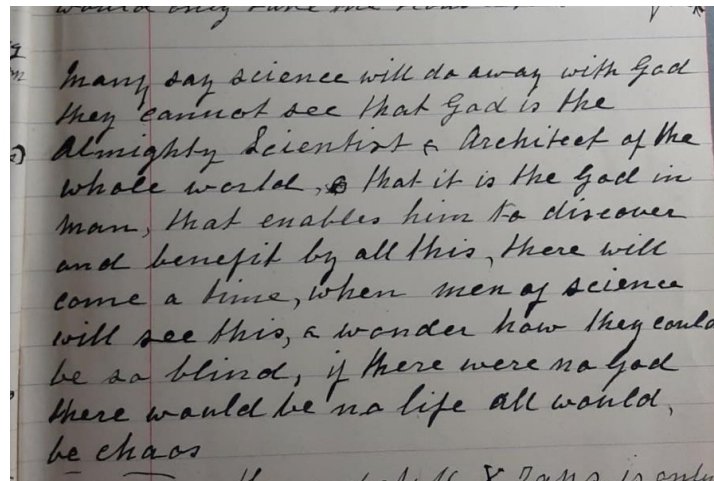 would only take the
many say science will do away with God
they cannot see that God is the
Almighty Scientist & Architect of the
whole world, & that it is the God in
man, that enables him to discover
and benefit by all this, there will
come a time, when men of science
will see this, & wonder how they could
be so blind, if there were no God
there would be no life all would,
be chaos
is only